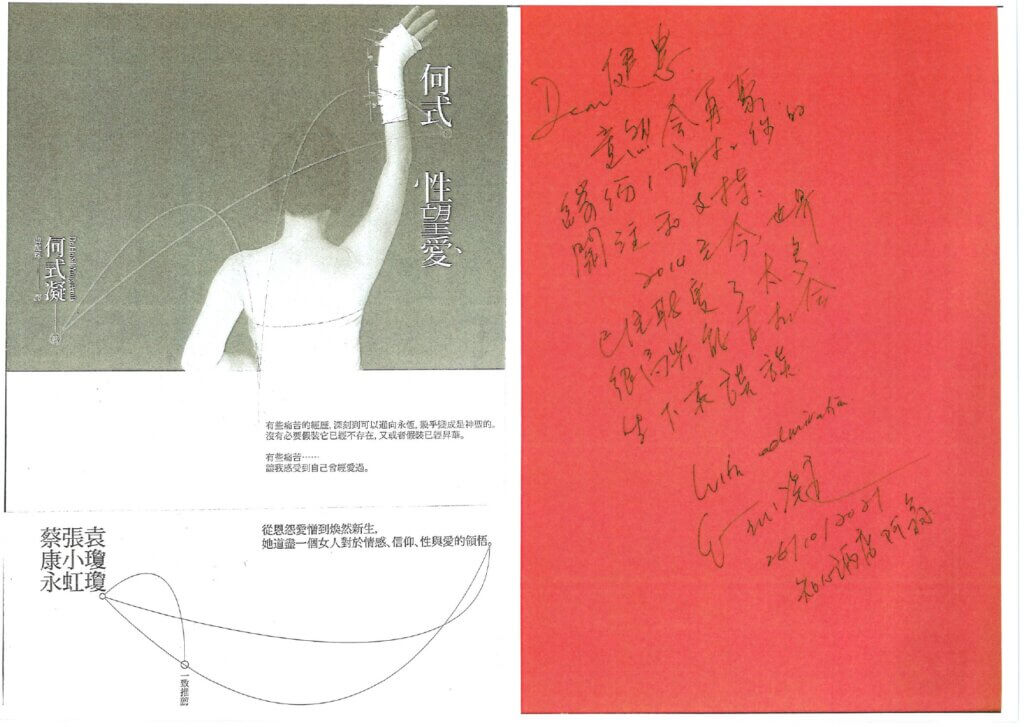 何式。
性望愛、
何式凝
有些痛苦的經歷，深刻到可以通向永恆，幾乎變成是神聖的。
沒有必要假裝它已經不存在，又或者假裝已經昇華。
有些痛苦⋯⋯
讓我感受到自己曾經愛過。
從恩怨愛憎到煥然新生，
她道盡一個女人對於情感、信仰、性與愛的領悟。
袁瓊瓊
張小虹
蔡康永
一致推薦
Dear 健
竟然會再
你的
關注和支持.
2014至今,世界
已經改變了太多
很高興能有機會
坐下來談談
With admiration
26/10/2021